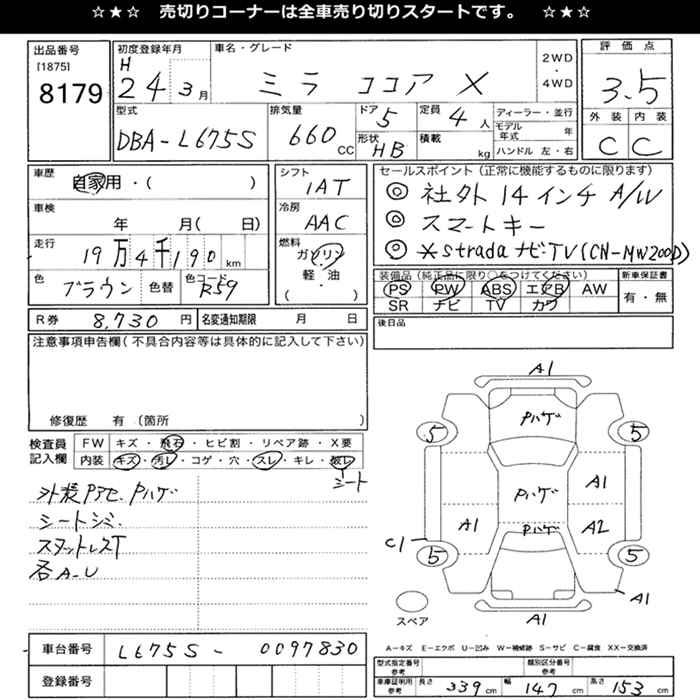 ☆★☆ 売切りコーナーは全車売り切りスタートです。 ☆★☆
出品番号
[1875]
8179
初度登録年月
H
24 3月
車名・グレード
ミラ ココア X
2WD
・
4WD
評価点
3.5
外装 内装
C C
型式
DBA-L675S
排気量
660 CC
ドア 5
形状 HB
定員 4 人
積載 kg
ディーラー・並行
モデル年式 年
ハンドル 左・右
車歴
自家用・( )
車検
年 月( 日)
走行
19万4千190 km
色
ブラウン 色替
色コード
R59
シフト
IAT
冷房
AAC
燃料
ガソリン
軽・油
( )
セールスポイント(正常に機能するものに限ります)
◎ 社外14インチA/W
◎ スマートキー
◎ ※stradaナビ:TV(CN-MW200D)
装備品(純正品に限り○をつけてください)
PS PW ABS エアB AW
SR ナビ TV カワ
新車保証書
有・無
R券 8,730 円
名変通知期限 月 日
後日品
注意事項申告欄(不具合内容等は具体的に記入して下さい)
修復歴 有(箇所 )
検査員
記入欄
FW キズ・飛石・ヒビ割・リペア跡・X要
内装 キズ・汚レ・コゲ・穴・スレ・キレ・破レ
シート
外装PアセPハゲ
シートシミ.
スタットレスT
各A-U
A1
Pハゲ
5 5
A1
Pハゲ
A1 A2
Pハゲ
C1
5 5
A1
A1
スペア
A-キズ E-エクボ U-凹み W-補修跡 S-サビ C-腐食 XX-交換済
車台番号 L675S-0097830
登録番号
型式指定番号
参考
類別区分番号
参考
車庫証明用
参考
長さ 339 cm 幅 147 cm 高さ 153 cm